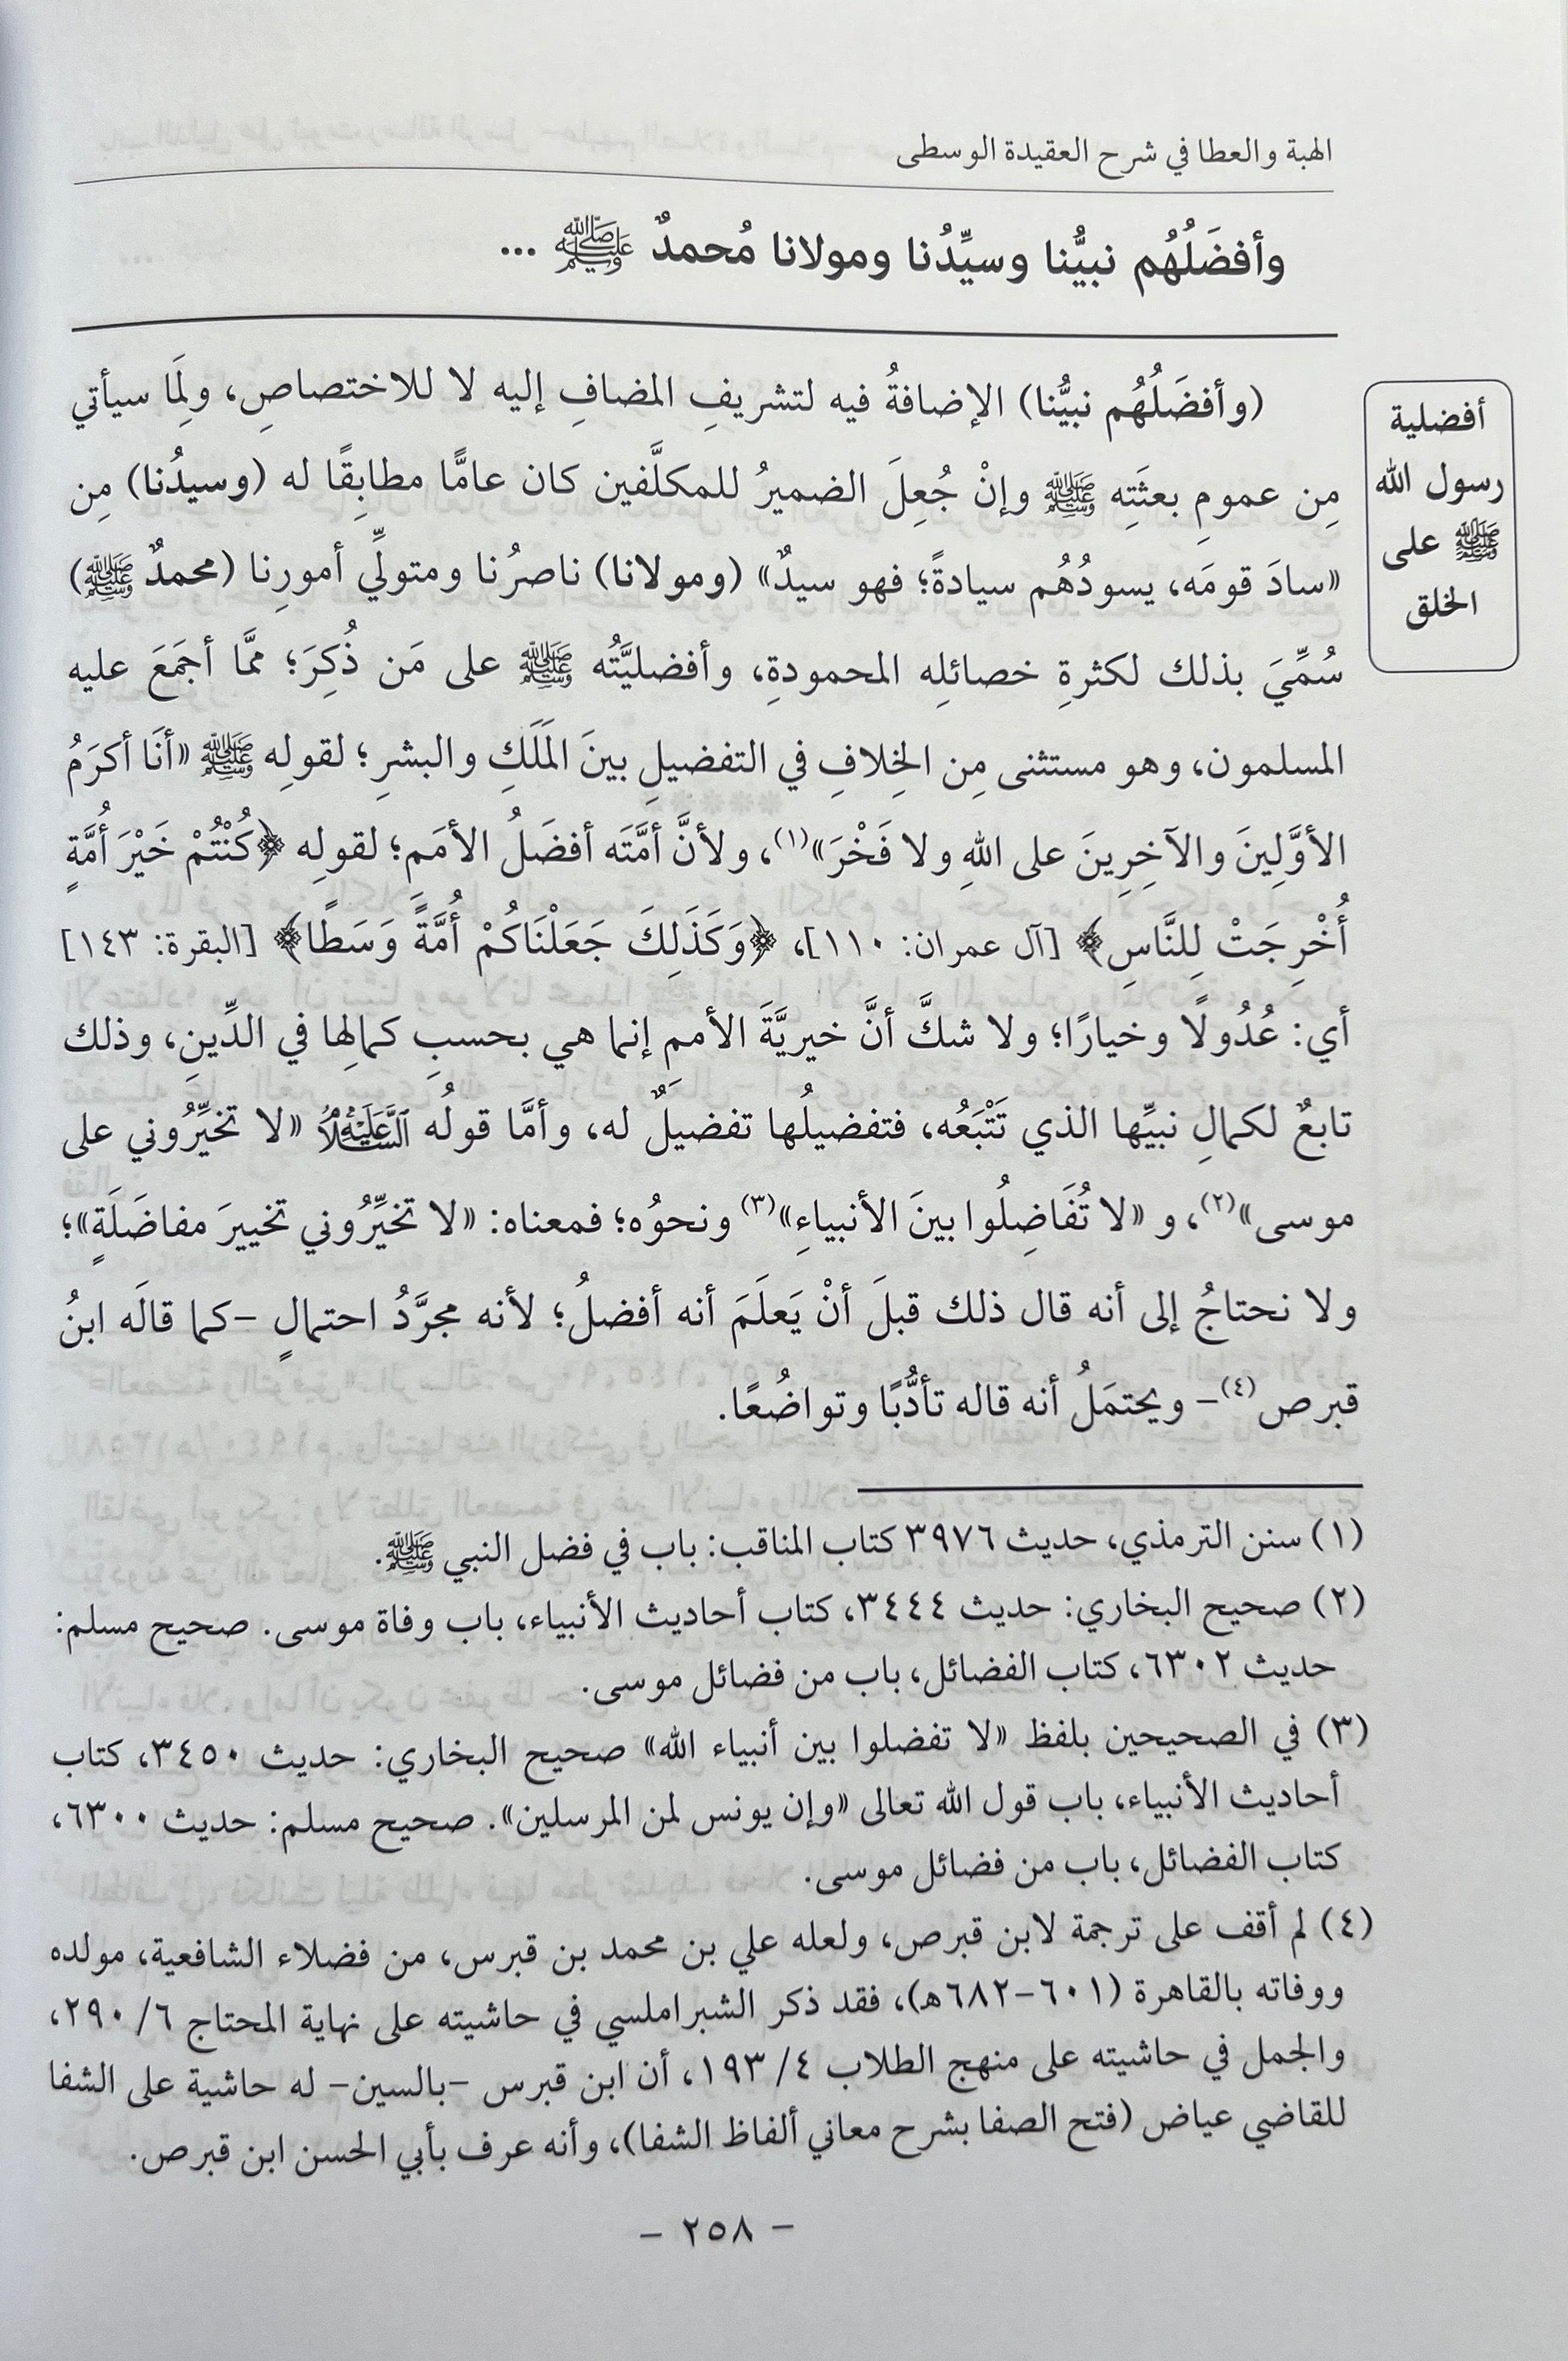 الهبة والعطا في شرح العقيدة الوسطى
وأفضَلُهُم نبيُّنا وسيِّدُنا ومولانا مُحمدٌ ﷺ ...
أفضلية
رسول الله
ﷺ على
الخلق
(وأفضَلُهُم نبيُّنا) الإضافةُ فيه لتشريفِ المضافِ إليه لا للاختصاصِ، ولِمَا سيأتي
مِن عمومِ بعثَتِه ﷺ وإنْ جُعِلَ الضميرُ للمكلَّفين كان عامًّا مطابِقًا له (وسيدُنا) مِن
«سادَ قومَه، يسودُهُم سيادةً؛ فهو سيدٌ» (ومولانا) ناصرُنا ومتولِّي أمورِنا (محمدٌ ﷺ)
سُمِّيَ بذلك لكثرةِ خصائلِه المحمودةِ، وأفضليَّتُه ﷺ على مَن ذُكِرَ؛ ممَّا أجمَعَ عليه
المسلمون، وهو مستثنى مِن الخِلافِ في التفضيلِ بينَ المَلَكِ والبشرِ؛ لقولِه ﷺ «أنَا أكرَمُ
الأوَّلِينَ والآخِرِينَ على اللهِ ولا فَخْرَ»(١)، ولأنَّ أمَّتَه أفضَلُ الأمَم؛ لقولِه ﴿كُنْتُمْ خَيْرَ أُمَّةٍ
أُخْرِجَتْ لِلنَّاسِ﴾ [آل عمران: ١١٠]، ﴿وَكَذَلِكَ جَعَلْنَاكُمْ أُمَّةً وَسَطًا﴾ [البقرة: ١٤٣]
أي: عُدُولًا وخيارًا؛ ولا شكَّ أنَّ خيريَّةَ الأممِ إنما هي بحسبِ كمالِها في الدِّينِ، وذلك
تابعٌ لكمالِ نبيِّها الذي تَتْبَعُه، فتفضيلُها تفضيلٌ له، وأمَّا قولُه عَلَيْهِ السَّلَامُ «لا تخيِّرُوني على
موسى»(٢)، و «لا تُفَاضِلُوا بينَ الأنبياءِ»(٣) ونحوُه؛ فمعناه: «لا تخيِّرُوني تخييرَ مفاضَلَةٍ»؛
ولا نحتاجُ إلى أنه قال ذلك قبلَ أنْ يَعلَمَ أنه أفضلُ؛ لأنه مجرَّدُ احتمالٍ -كما قالَه ابنُ
قبرص(٤)- ويحتمَلُ أنه قاله تأدُّبًا وتواضُعًا.
(١) سنن الترمذي، حديث ٣٩٧٦ كتاب المناقب: باب في فضل النبي ﷺ.
(٢) صحيح البخاري: حديث ٣٤٤٤، كتاب أحاديث الأنبياء، باب وفاة موسى. صحيح مسلم:
حديث ٦٣٠٢، كتاب الفضائل، باب من فضائل موسى.
(٣) في الصحيحين بلفظ «لا تفضلوا بين أنبياء الله» صحيح البخاري: حديث ٣٤٥٠، كتاب
أحاديث الأنبياء، باب قول الله تعالى «وإن يونس لمن المرسلين». صحيح مسلم: حديث ٦٣٠٠،
كتاب الفضائل، باب من فضائل موسى.
(٤) لم أقف على ترجمة لابن قبرص، ولعله علي بن محمد بن قبرس، من فضلاء الشافعية، مولده
ووفاته بالقاهرة (٦٠١-٦٨٢هـ)، فقد ذكر الشبراملسي في حاشيته على نهاية المحتاج ٦/ ٢٩٠،
والجمل في حاشيته على منهج الطلاب ٤/ ١٩٣، أن ابن قبرس -بالسين- له حاشية على الشفا
للقاضي عياض (فتح الصفا بشرح معاني ألفاظ الشفا)، وأنه عرف بأبي الحسن ابن قبرص.
- ٢٥٨ -